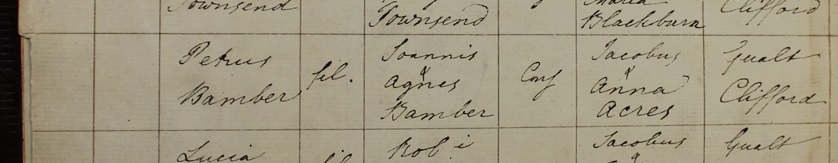 Townsend Townsend Maria Clifford
Blackburn
Petrus fil. Joannis Conj Jacobus Gualt
Bamber Agnes Anna Clifford
Bamber Acres
Lucia fil Rob.i Jacobus Gualt